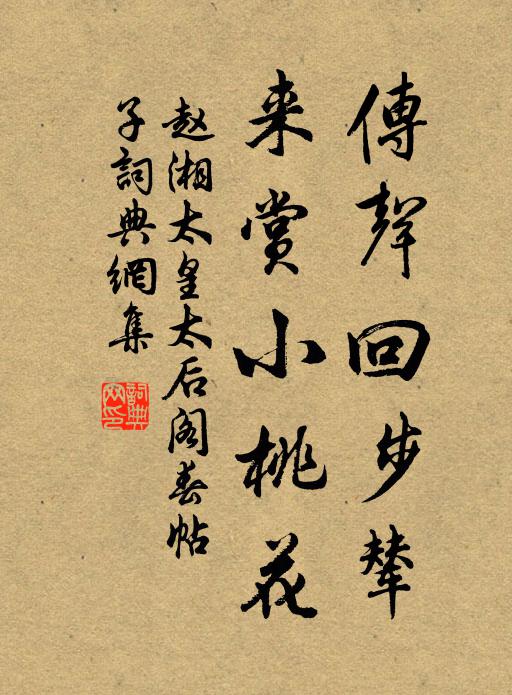 傳聲回步輦
来賞小桃花
赵湘太皇太后阁春帖
子詞典網集
詞典网印